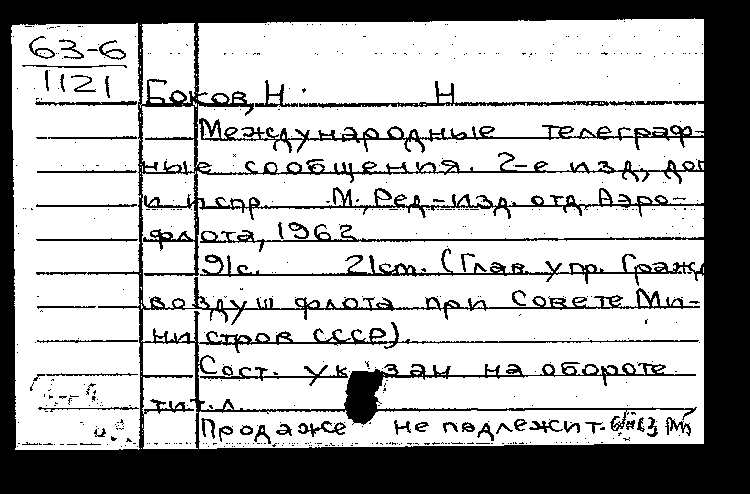 63-6
1121
Боков, Н. Н
Международные телеграф-
ные сообщения. 2-е изд, доп
и испр М., Ред.-изд. отд. Аэро-
флота, 1962
91с. 21cm. (Глав. упр. Гражд
воздуш флота при Совете Ми-
нистров СССР).
Сост. указан на обороте
тит. л.
Продаже не подлежит.